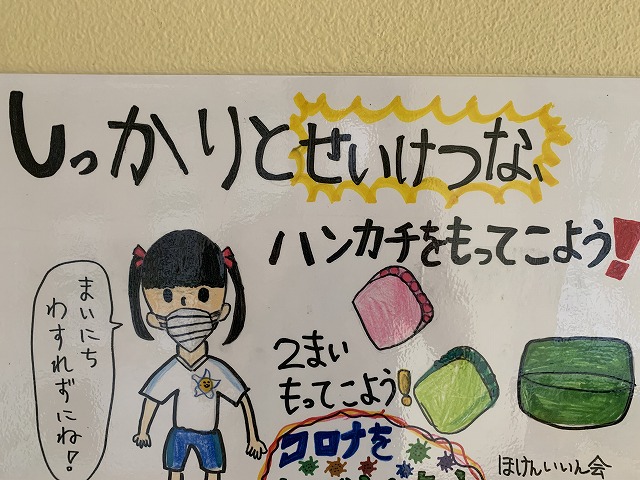 しっかりとせいけつな、
ハンカチをもってこよう!
まいにち
わすれずにね!
2まい
もってこよう!
コロナを
ほけんいいん会